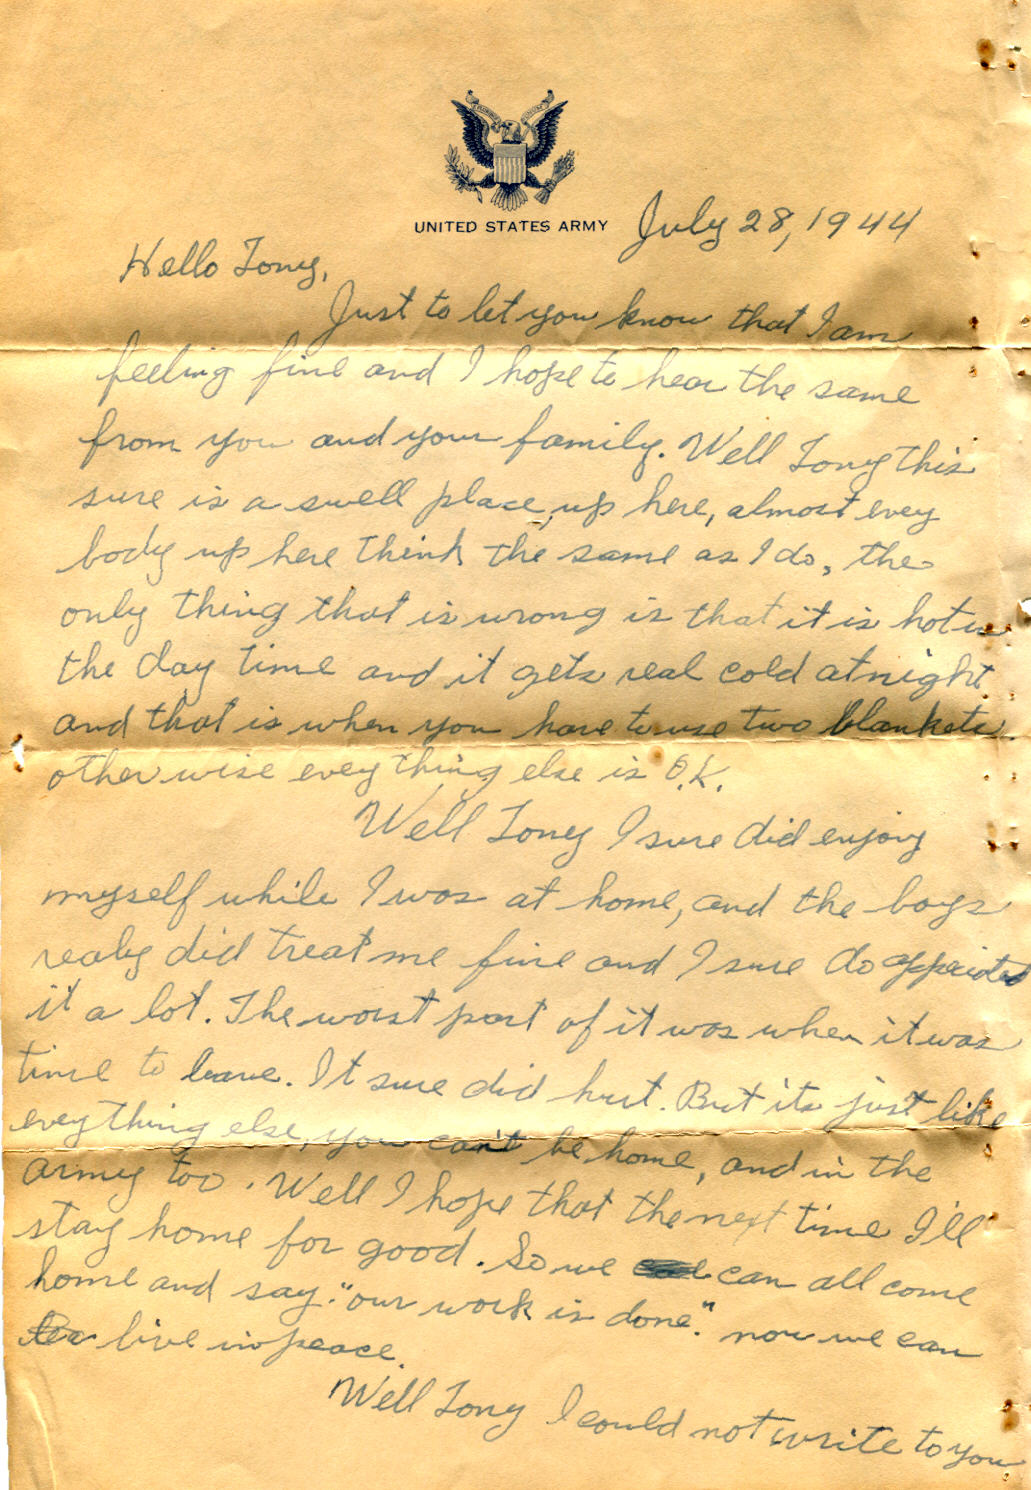 UNITED STATES ARMY
July 28, 1944
Hello Tony,
Just to let you know that I am
feeling fine and I hope to hear the same
from you and your family. Well Tony this
sure is a swell place, up here, almost evey
body up here think the same as I do, the
only thing that is wrong is that it is hot in
the day time and it gets real cold at night
and that is when you have to use two blankets
other wise evey thing else is O.K.
Well Tony I sure did enjoy
myself while I was at home, and the boys
realy did treat me fine and I sure do
it a lot. The worst part of it was when it was
time to leave. It sure did hurt. But its just like
evey thing else, you can't be home, and in the
army too. Well I hope that the next time I'll
stay home for good. So we can all come
home and say "our work is done." now we can
live in peace.
Well Tony I could not write to you